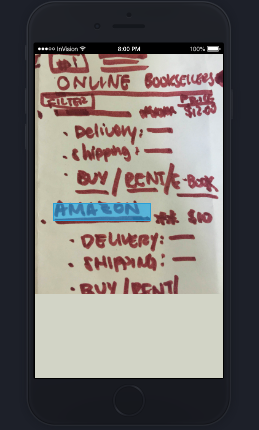 InVision 8:00 PM 100%
#1
ONLINE BOOKSELLERS
FILTER PRICE
$12.00
• Delivery: —
• Shipping: —
• BUY / RENT / E-BOOK
• AMAZON $10
• DELIVERY: —
• SHIPPING: —
• BUY / RENT /